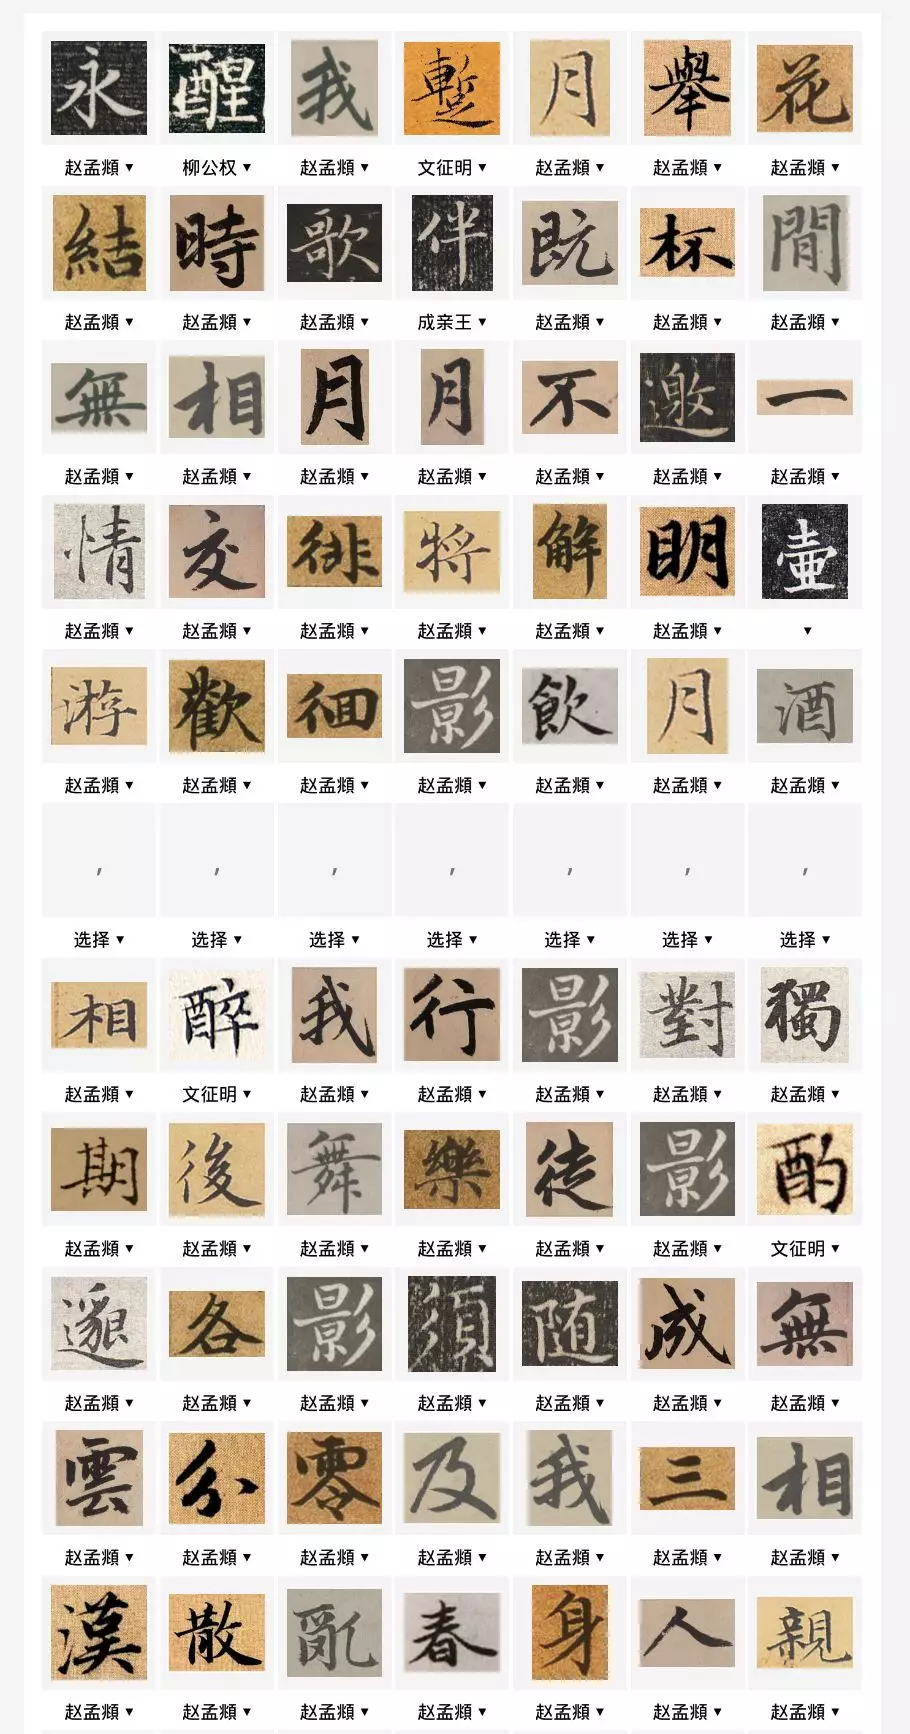 永 醒 我 暫 月 舉 花
赵孟頫▼ 柳公权▼ 赵孟頫▼ 文征明▼ 赵孟頫▼ 赵孟頫▼ 赵孟頫▼
結 時 歌 伴 既 杯 間
赵孟頫▼ 赵孟頫▼ 赵孟頫▼ 成亲王▼ 赵孟頫▼ 赵孟頫▼ 赵孟頫▼
無 相 月 月 不 邀 一
赵孟頫▼ 赵孟頫▼ 赵孟頫▼ 赵孟頫▼ 赵孟頫▼ 赵孟頫▼ 赵孟頫▼
情 交 徘 將 解 明 壺
赵孟頫▼ 赵孟頫▼ 赵孟頫▼ 赵孟頫▼ 赵孟頫▼ 赵孟頫▼ ▼
游 歡 徊 影 飲 月 酒
赵孟頫▼ 赵孟頫▼ 赵孟頫▼ 赵孟頫▼ 赵孟頫▼ 赵孟頫▼ 赵孟頫▼
, , , , , , ,
选择▼ 选择▼ 选择▼ 选择▼ 选择▼ 选择▼ 选择▼
相 醉 我 行 影 對 獨
赵孟頫▼ 文征明▼ 赵孟頫▼ 赵孟頫▼ 赵孟頫▼ 赵孟頫▼ 赵孟頫▼
期 後 舞 樂 徒 影 酌
赵孟頫▼ 赵孟頫▼ 赵孟頫▼ 赵孟頫▼ 赵孟頫▼ 赵孟頫▼ 文征明▼
邈 各 影 須 随 成 無
赵孟頫▼ 赵孟頫▼ 赵孟頫▼ 赵孟頫▼ 赵孟頫▼ 赵孟頫▼ 赵孟頫▼
雲 分 零 及 我 三 相
赵孟頫▼ 赵孟頫▼ 赵孟頫▼ 赵孟頫▼ 赵孟頫▼ 赵孟頫▼ 赵孟頫▼
漢 散 亂 春 身 人 親
赵孟頫▼ 赵孟頫▼ 赵孟頫▼ 赵孟頫▼ 赵孟頫▼ 赵孟頫▼ 赵孟頫▼